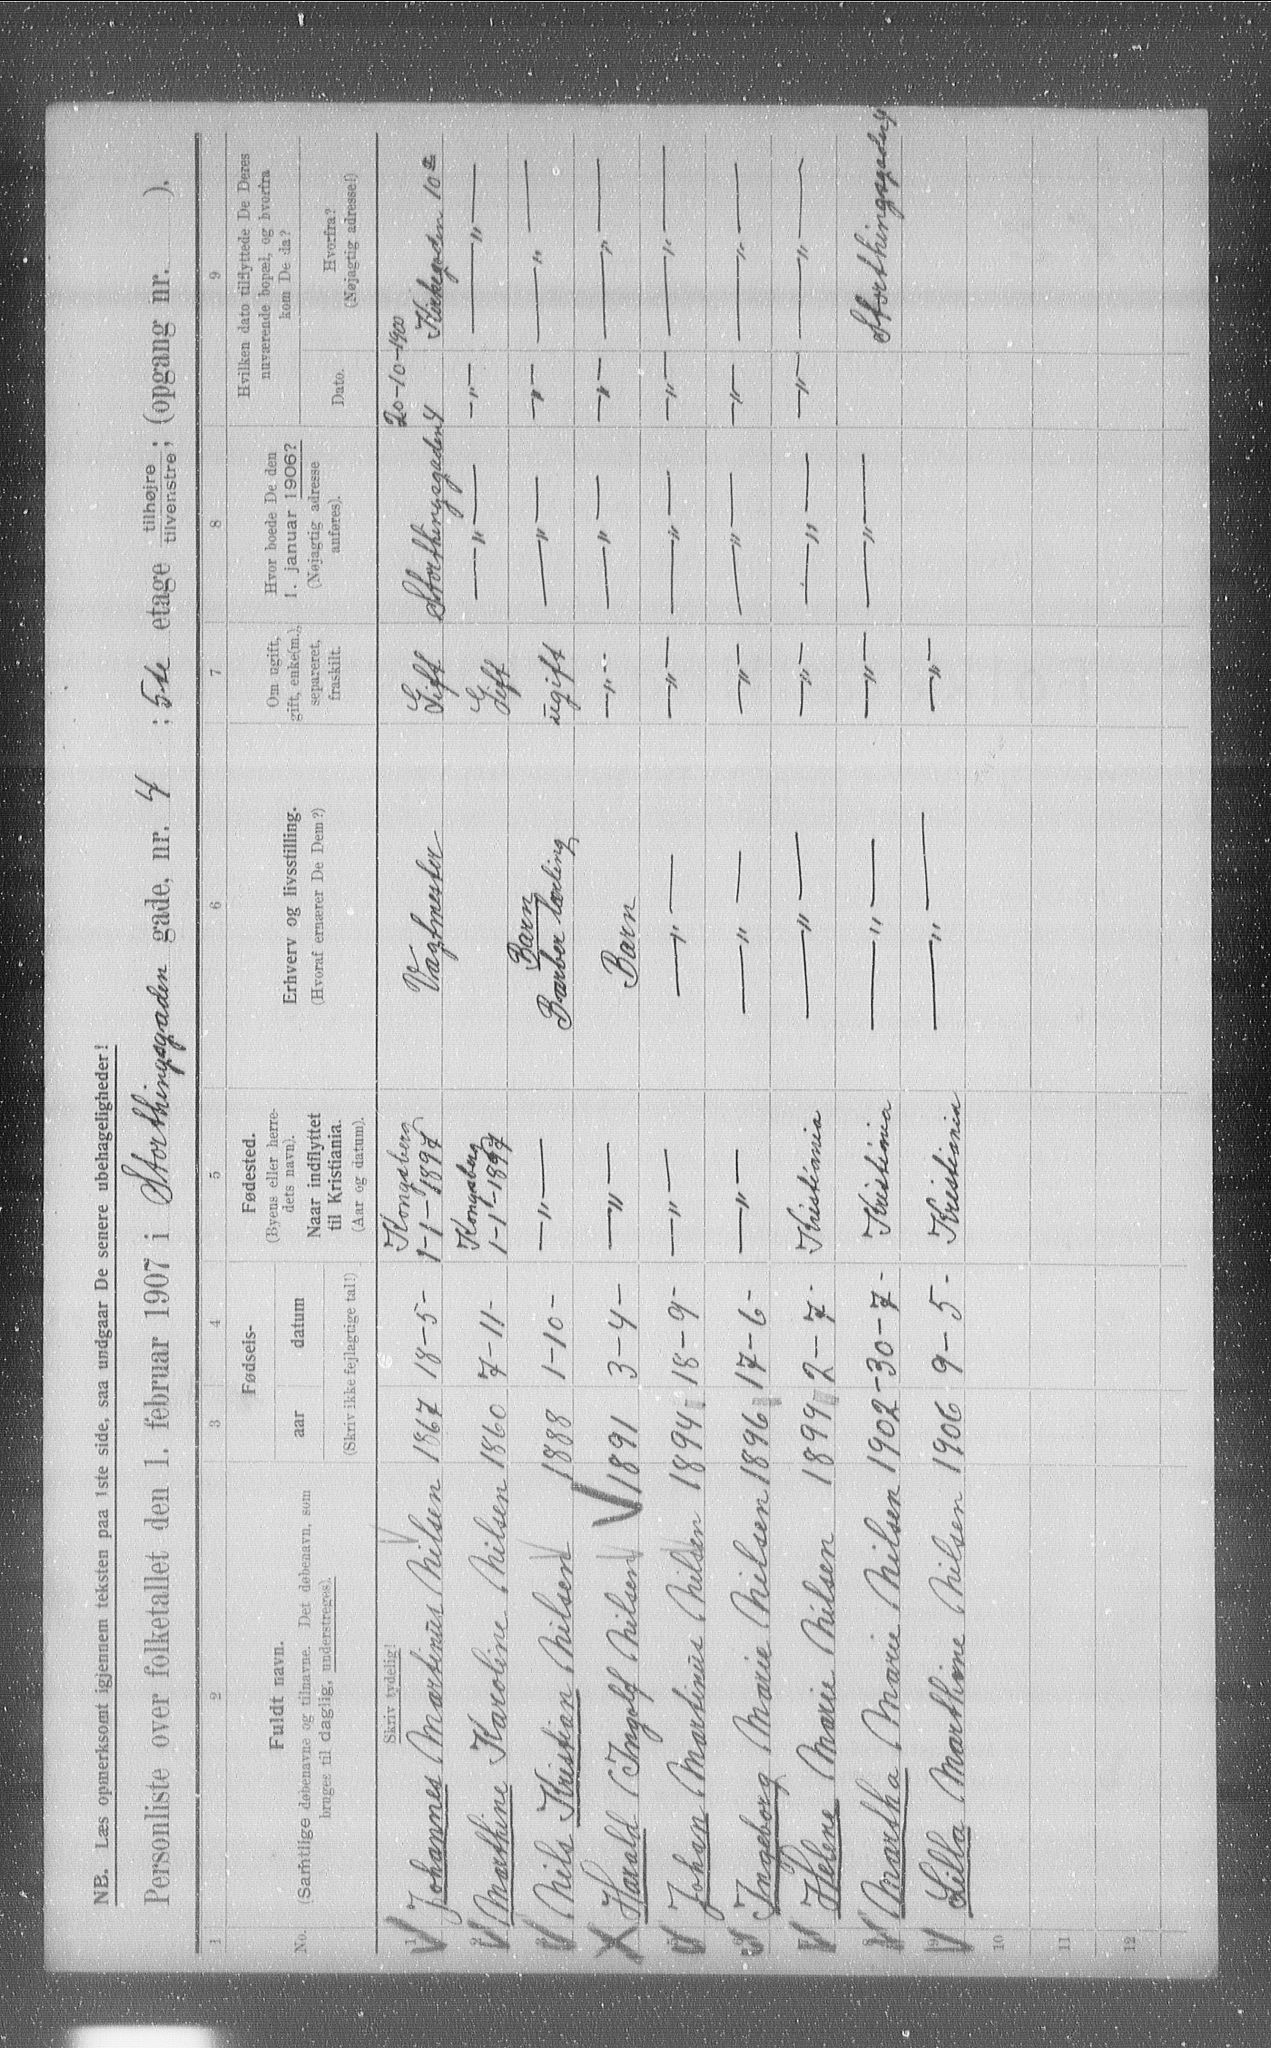 NB. Læs opmerksomt igjennem teksten paa 1ste side, saa undgaar De senere ubehageligheder!
Personliste over folketallet den 1. februar 1907 i Storthingsgaden gade, nr. 4 ; 5te etage tilhøjre tilvenstre; (opgang nr. ).
1 2 3 4 5 6 7 8 9
No. Fuldt navn. (Samtlige døbenavne og tilnavne. Det døbenavn, som bruges til daglig, understreges).
Fødsels-
aar datum
(Skriv ikke fejlagtige tal!)
Fødested. (Byens eller herredets navn). Naar indflyttet til Kristiania. (Aar og datum).
Erhverv og livsstilling. (Hvoraf ernærer De Dem?)
Om ugift, gift, enke(m.), separeret, fraskilt.
Hvor boede De den 1. januar 1906? (Nøjagtig adresse anføres).
Hvilken dato tilflyttede De Deres nuværende bopæl, og hvorfra kom De da?
Dato. Hvorfra? (Nøjagtig adresse!)
Skriv tydelig!
1 Johannes Martinus Nilsen 1867 18-5- Kongsberg 1-1-1897 Vagtmester Gift Storthingsgaden 4 20-10-1900 Kirkegaden 10 a
2 Marthine Karoline Nilsen 1860 7-11- Kongsberg 1-1-1897 Gift —"— —"— —"—
3 Nils Kristian Nilsen 1888 1-10- —"— Barn Barber lærling ugift —"— —"— —"—
4 Harald Ingolf Nilsen 1891 3-4- —"— Barn —"— —"— —"— —"—
5 Johan Martinus Nilsen 1894 18-9- —"— —"— —"— —"— —"— —"—
6 Ingeborg Marie Nilsen 1896 17-6- —"— —"— —"— —"— —"— —"—
7 Helene Marie Nilsen 1899 2-7- Kristiania —"— —"— —"— —"— —"—
8 Martha Marie Nilsen 1902 30-7- Kristiania —"— —"— —"— Storthingsgaden 4
9 Lilla Marthine Nilsen 1906 9-5- Kristiania —"— —"—
10
11
12